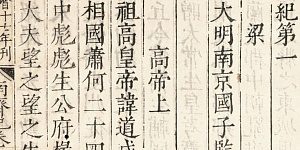 紀第一
梁
大明南京國子監
高帝上
祖高皇帝諱道成
相國蕭何二十四
中彪彪生公府掾
大夫望之望之生
十七年刊 南齊